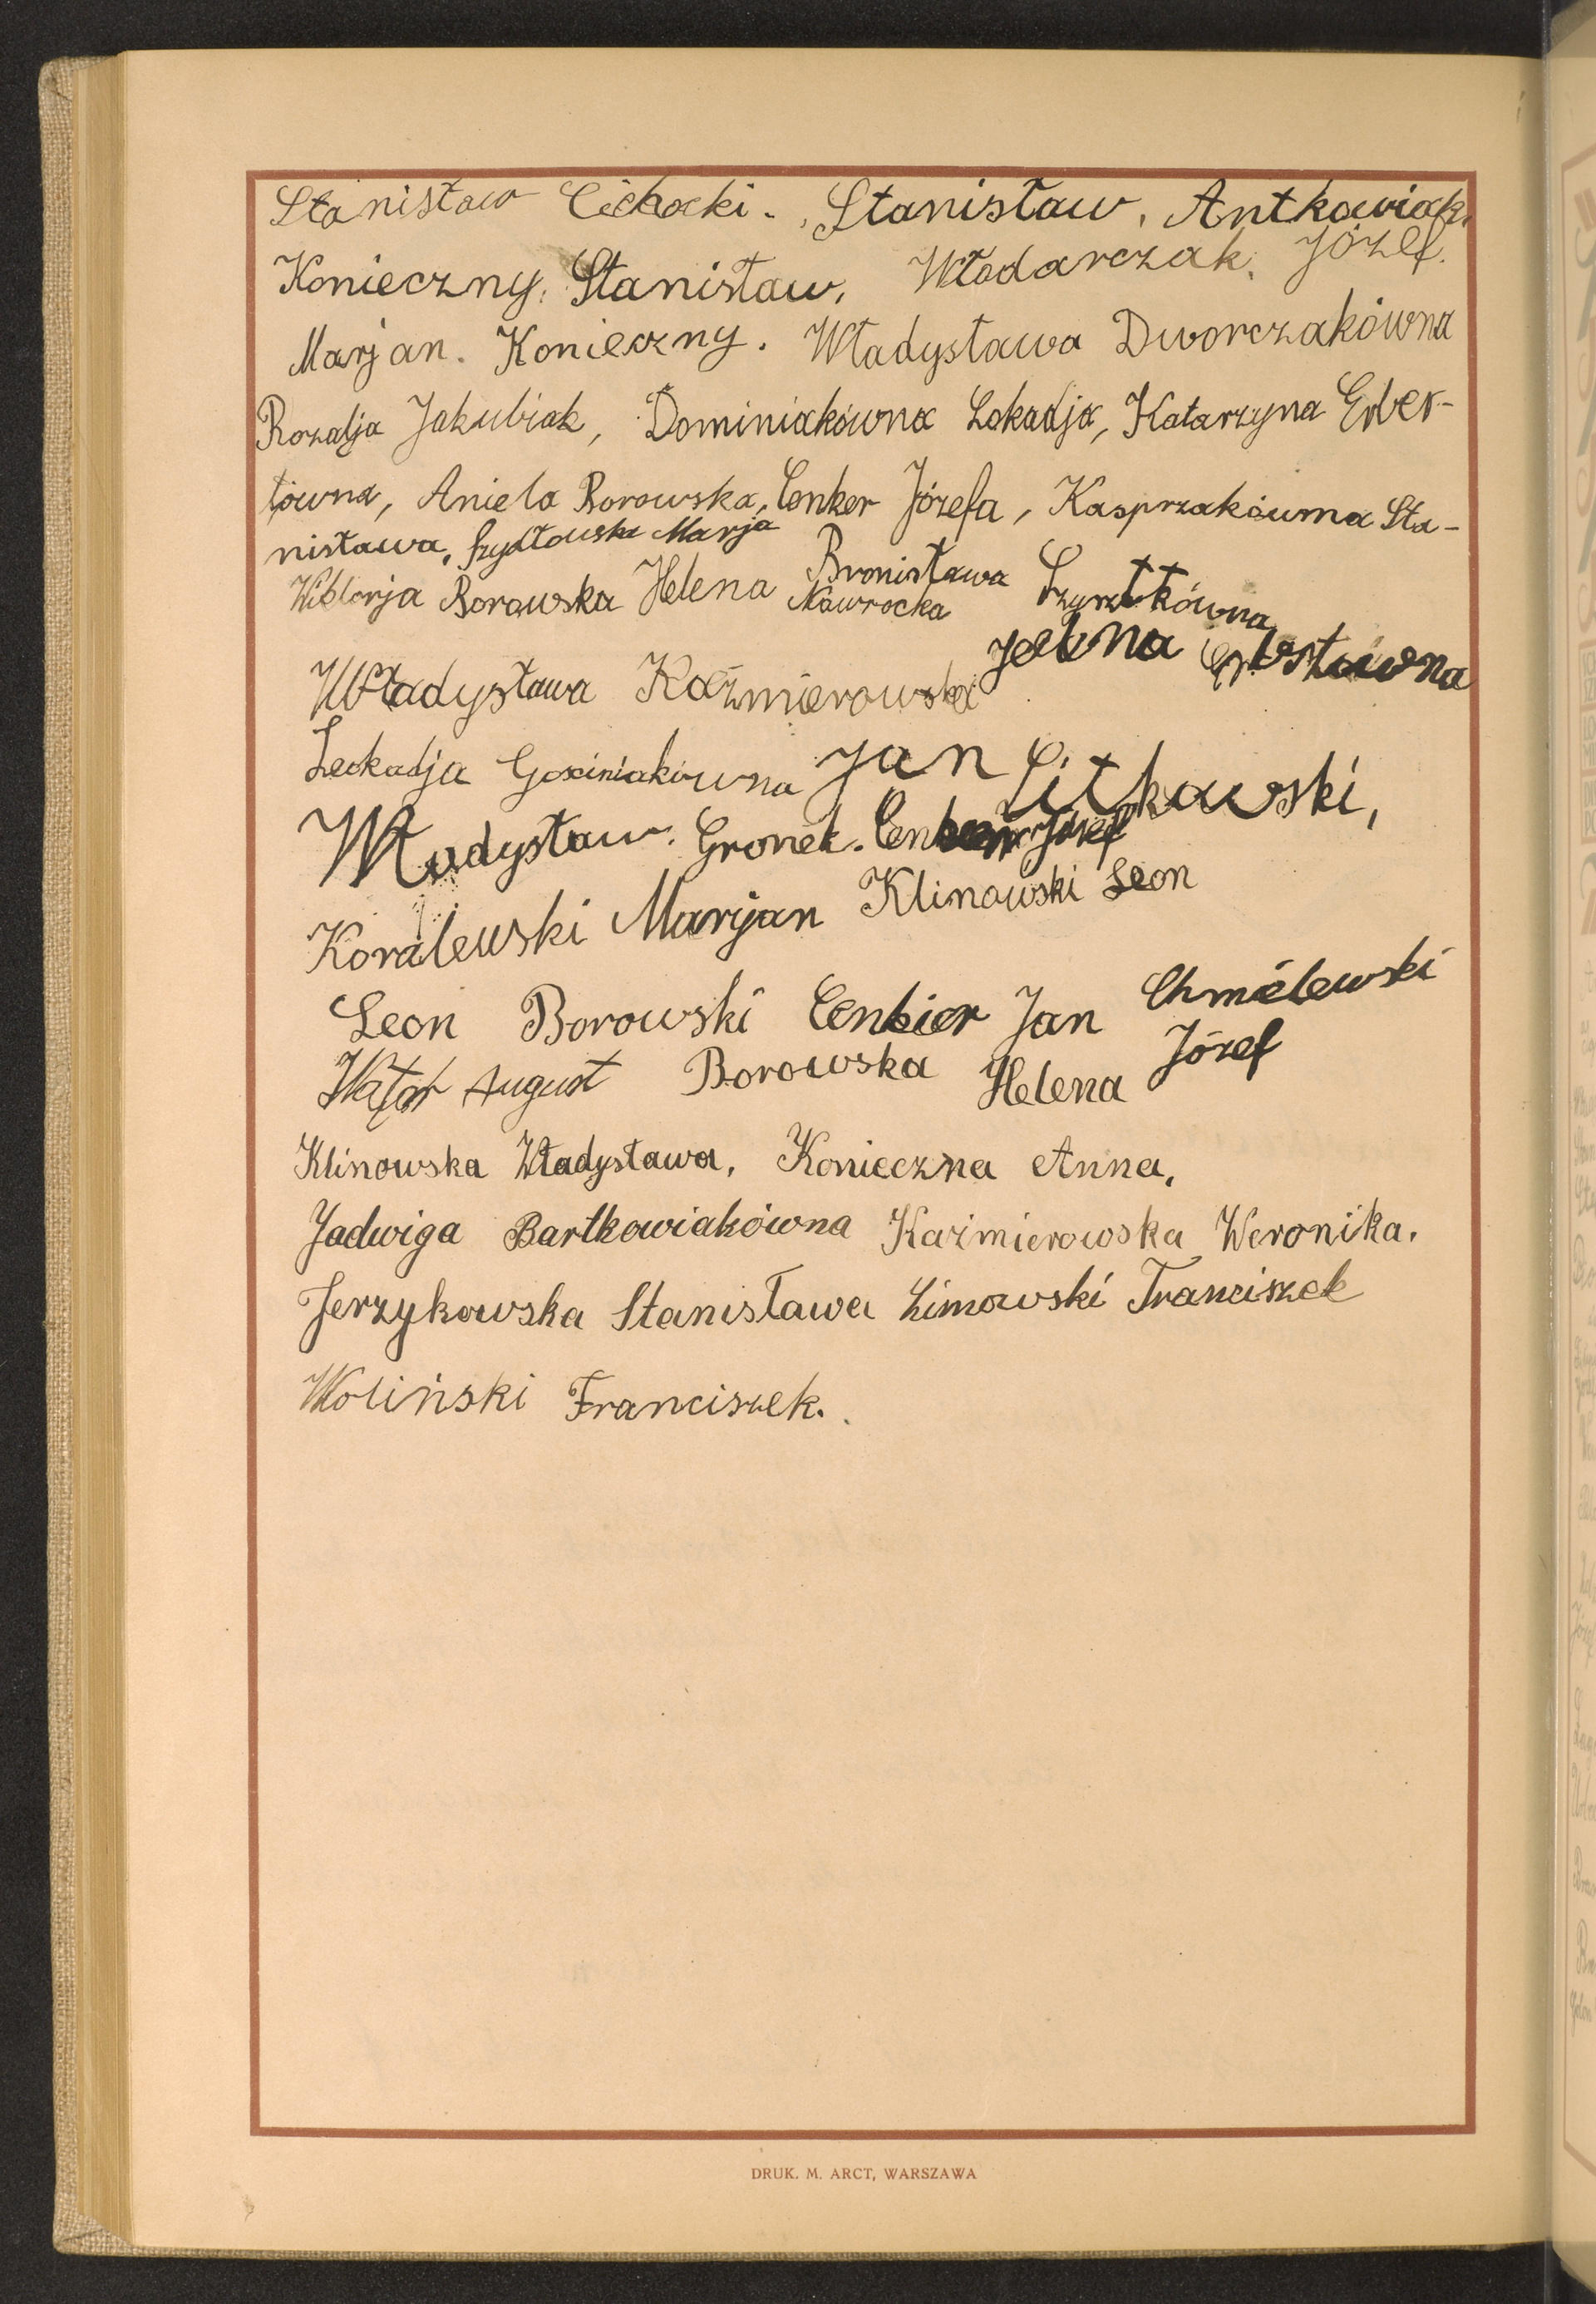 Stanisław Cichocki. Stanisław, Antkowiak.
Konieczny, Stanisław, Włodarczak, Józef.
Marjan. Konieczny. Władysława Dworczakówna
Rozalja Jakubiak, Dominiakówna Lokadja, Katarzyna Erber-
tówna, Aniela Borowska, Cenker Józefa, Kasprzakówna Sta-
nisława, Szydłowska Marja
Wiktorja Borowska Helena Nawrocka Bronisława
Władysława Kaźmierowska
Leokadja Gościniakówna Jan Litkowski,
Władysław. Gronek. Józef
Koralewski Marjan Klinowski Leon
Leon Borowski Cenkier Jan Chmielewski
Józef
August Borowska Helena
Klinowska Władysława, Konieczna Anna,
Jadwiga Bartkowiakówna Kaźmierowska Weronika.
Jerzykowska Stanisława Limowski Franciszek
Woliński Franciszek.
DRUK. M. ARCT, WARSZAWA